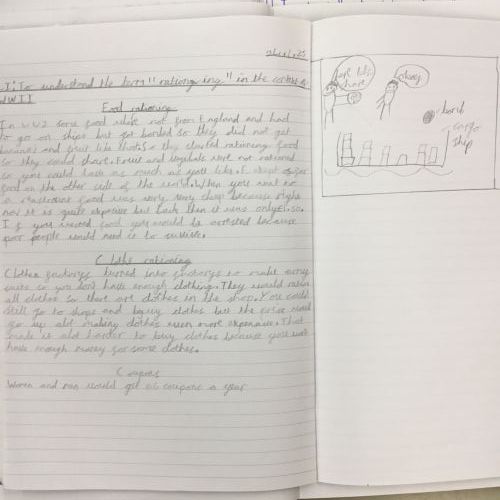 L.I: To understand the term "rationing" in the context of
WWII
Food rationing
In WW2 some food was not from England and had
to go on ships but got bombed so they did not get
bananas and fruit like that. So they started rationing food
so they could share. Fruit and were not rationed
so you could have as much as you like. Exept
food on the other side of the world. When you went to
a restaurant food was very very cheap because right
now it is quite expensive but back then it was only
If you wasted food you would be arrested because
poor people would need it to survive.
Cloths rationing
Clothes factorys turned into factorys to make army
suits so you dont have enough clothing. They would ration
all clothes so there are clothes in the shop. You could
still go to shops and buy clothes but the prise would
go up alot making clothes even more expensive. That
made it alot harder to buy clothes because you wont
have enough money for some clothes.
Coupons
Women and men would get 66 coupons a year
share
okay
bomb
cargo
ship